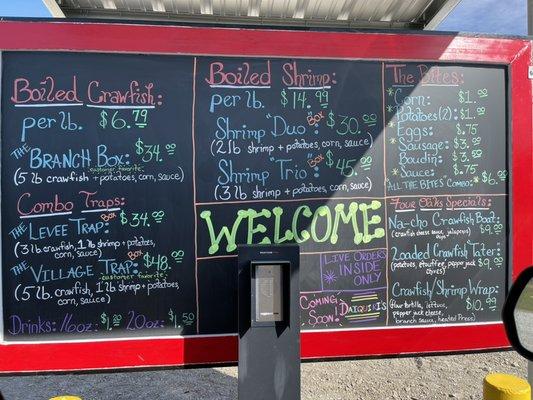 Boiled Crawfish:
per lb. $6.79
THE BRANCH Box: $34.00
customer favorite
(5 lb crawfish + potatoes, corn, sauce)
Combo Traps:
THE LEVEE TRAP: Box $34.00
(3 lb crawfish, 1 lb shrimp + potatoes
corn, sauce)
THE VILLAGE TRAP: Box $48.00
customer favorite
(5 lb crawfish, 1 lb shrimp + potatoes,
corn, sauce)
Drinks: 16oz. $1.00 20oz. $1.50
Boiled Shrimp:
per lb. $14.99
Shrimp "Duo" Box: $30.00
(2 lb shrimp + potatoes, corn, sauce)
Shrimp "Trio" Box: $45.00
(3 lb shrimp + potatoes, corn, sauce)
WELCOME
LIVE ORDERS
INSIDE
ONLY
COMING
SOON:
DAIQUIRI'S
The Bites:
*Corn: $1.00
Potatoes (2): $1.00
*Eggs: $.75
*Sausage: $3.00
Boudin: $3.00
*Sauce: $.75
*ALL THE BITES "Combo": $6.00
Four Oaks Specials:
Na-cho Crawfish Boat:
$9.00
Loaded Crawfish 'Tater:
$9.00
Crawfish/Shrimp Wrap:
$10.99
(flour tortilla, lettuce,
pepper jack cheese,
branch sauce, heated Press)